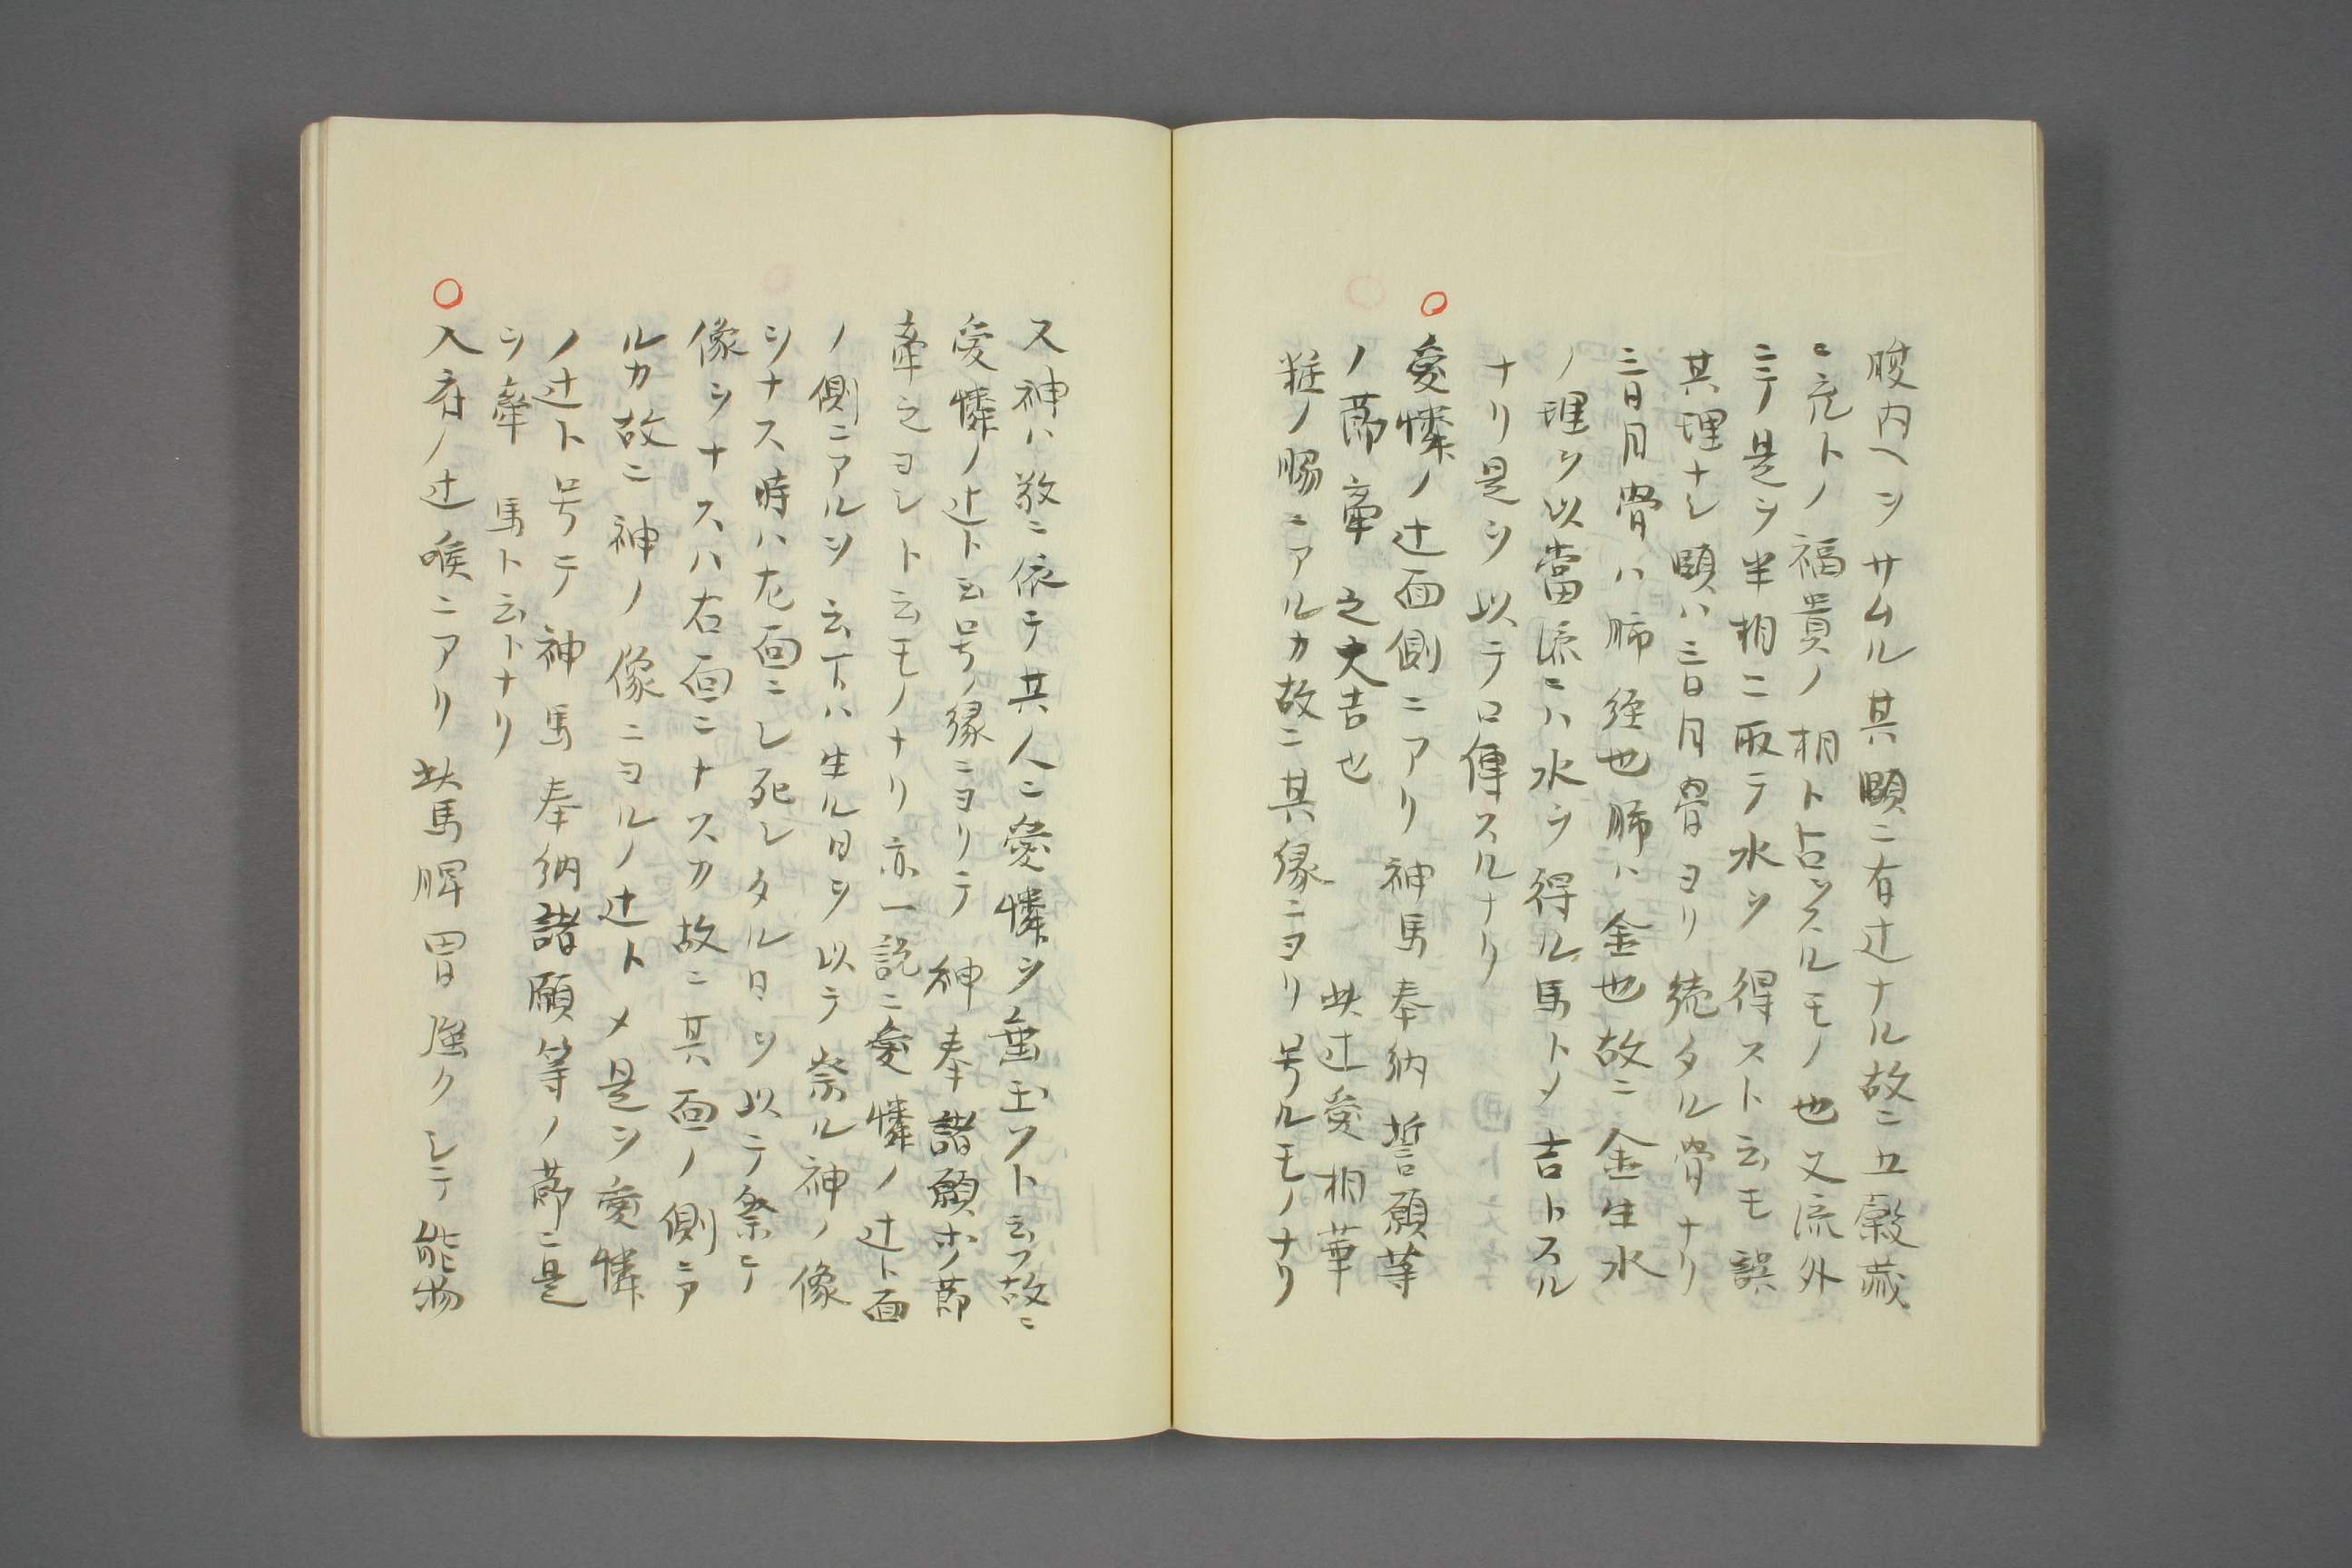 腹内ヘヲサムル其顋ニ有辻ナル故ニ五穀蔵
ニ充トノ福貴ノ相ト占スルモノ也又流外
ニテ是ヲ半相ニ取テ水ヲ得スト云モ誤
其理ナシ顋ハ三日月骨ヨリ続タル骨ナリ
三日月骨ハ肺経也肺ハ金也故ニ金生水
ノ理ヲ以當流ニハ水ヲ得ル馬トメ吉トスル
ナリ是ヲ以テ口傳スルナリ
○愛憐ノ辻面側ニアリ神馬奉納誓願等
ノ節牽之大吉也 此辻愛相華
粧ノ腸ニアルカ故ニ其縁ニヨリ号ルモノナリ
ス神ハ敬ニ依テ其人ニ愛憐ヲ垂玉フト云フ故ニ
愛憐ノ辻ト云号ノ縁ニヨリテ神奉諸願ホノ節
牽之ヨシト云モノナリ亦一説ニ愛憐ノ辻ト面
ノ側ニアルヲ云下ハ生ル日ヲ以テ祭ル神ノ像
ヲナス時ハ左面ニシ死シタル日ヲ以テ祭テ
像ヲナスハ右面ニナスカ故ニ其面ノ側ニア
ルカ故ニ神ノ像ニヨルノ辻トメ是ヲ愛憐
ノ辻ト号テ神馬奉納諸願等ノ節ニ是
ヲ牽馬ト云トナリ
○入府ノ辻喉ニアリ此馬脾胃強クシテ能物